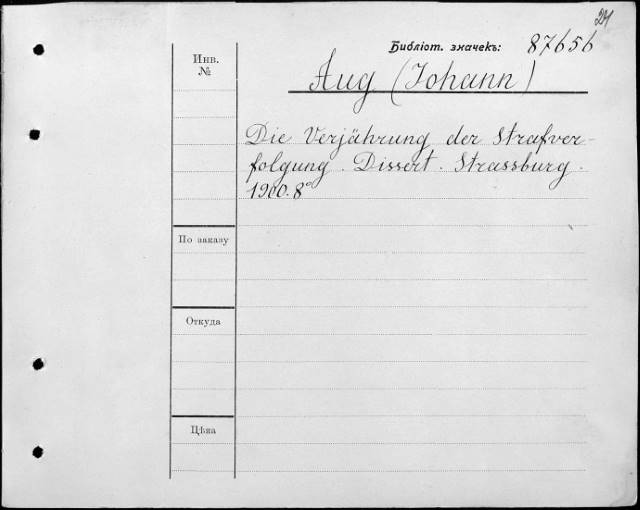 24
Библіот. значекъ: 87656
Инв.
№
Aug (Johann)
Die Verjährung der Strafver-
folgung. Dissert. Strassburg.
1900. 8°
По заказу
Откуда
Цѣна